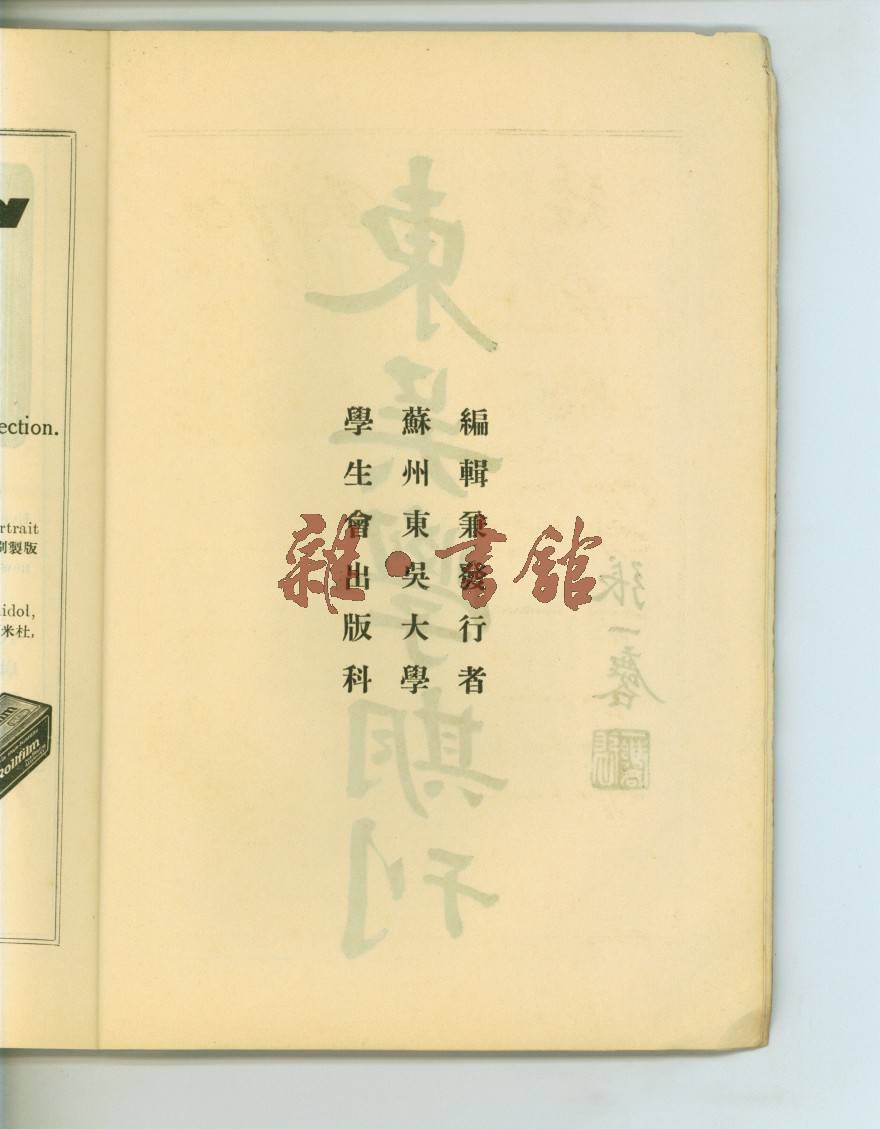 編輯兼發行者
蘇州東吳大學
學生會出版科
雜·書館
東吳學期刊
張一麐
ection.
rtrait
刷製版
idol,
米杜,
Rollfilm